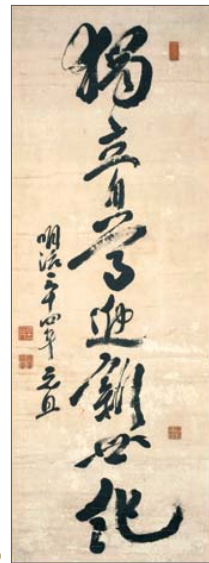 獨立自尊迎新世紀
明治三十四年 元旦